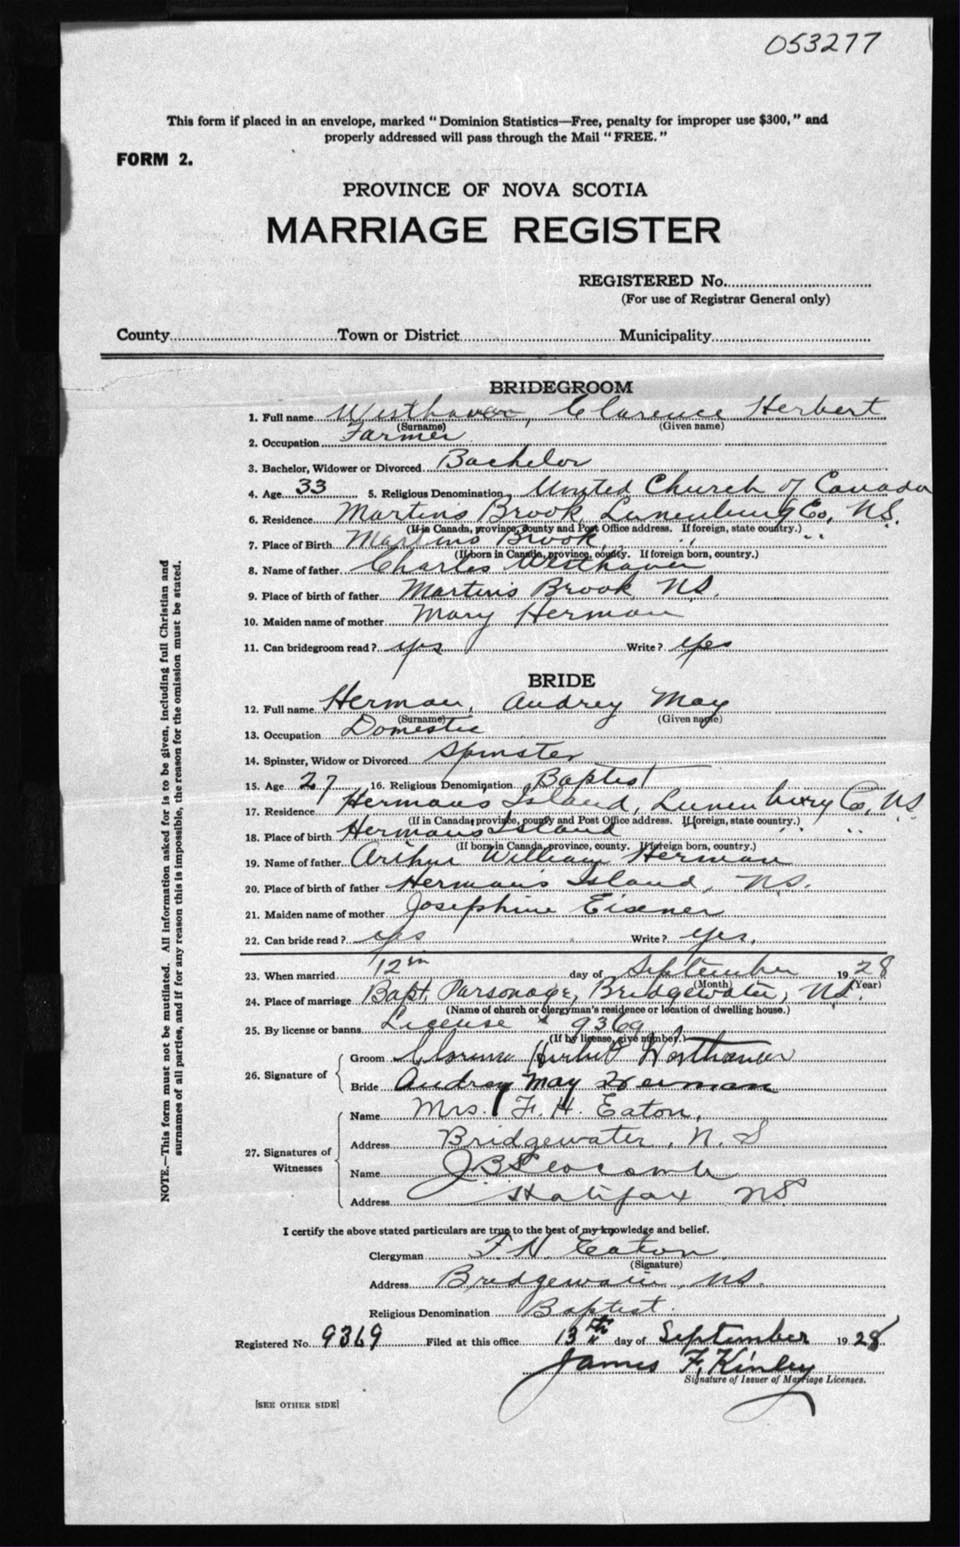 053277
This form if placed in an envelope, marked "Dominion Statistics—Free, penalty for improper use $300," and
properly addressed will pass through the Mail "FREE."
FORM 2.
PROVINCE OF NOVA SCOTIA
MARRIAGE REGISTER
REGISTERED No.
(For use of Registrar General only)
County Town or District Municipality
BRIDEGROOM
1. Full name Westhaver, Clarence Herbert
(Surname) (Given name)
2. Occupation Farmer
3. Bachelor, Widower or Divorced Bachelor
4. Age 33 5. Religious Denomination United Church of Canada
6. Residence Martins Brook, Lunenburg Co, N.S.
(If in Canada, province, county and Post Office address. If foreign, state country.)
7. Place of Birth Martins Brook, " "
(If born in Canada, province, county. If foreign born, country.)
8. Name of father Charles Westhaver
9. Place of birth of father Martin's Brook N.S.
10. Maiden name of mother Mary Herman
11. Can bridegroom read? yes Write? yes
BRIDE
12. Full name Herman, Audrey May
(Surname) (Given name)
13. Occupation Domestic
14. Spinster, Widow or Divorced Spinster
15. Age 27 16. Religious Denomination Baptist
17. Residence Herman's Island, Lunenburg Co, N.S
(If in Canada, province, county and Post Office address. If foreign, state country.)
18. Place of birth Hermans Island " "
(If born in Canada, province, county. If foreign born, country.)
19. Name of father Arthur William Herman
20. Place of birth of father Herman's Island, N.S.
21. Maiden name of mother Josephine Eisener
22. Can bride read? yes Write? yes.
23. When married 12th day of September 1928
(Month) (Year)
24. Place of marriage Bapt. Parsonage, Bridgewater, N.S.
(Name of church or clergyman's residence or location of dwelling house.)
25. By license or banns License 9369
(If by license, give number.)
26. Signature of
Groom Clarence Herbert Westhaver
Bride Audrey May Herman
27. Signatures of Witnesses
Name Mrs. F. H. Eaton,
Address Bridgewater, N.S
Name J B Slocomb
Address Halifax NS
I certify the above stated particulars are true to the best of my knowledge and belief.
Clergyman F. H. Eaton
(Signature)
Address Bridgewater, N.S.
Religious Denomination Baptist.
Registered No. 9369 Filed at this office 13th day of September 1928
James F. Kinley
Signature of Issuer of Marriage Licenses.
[SEE OTHER SIDE]
NOTE.—This form must not be mutilated. All information asked for is to be given, including full Christian and
surnames of all parties, and if for any reason this is impossible, the reason for the omission must be stated.